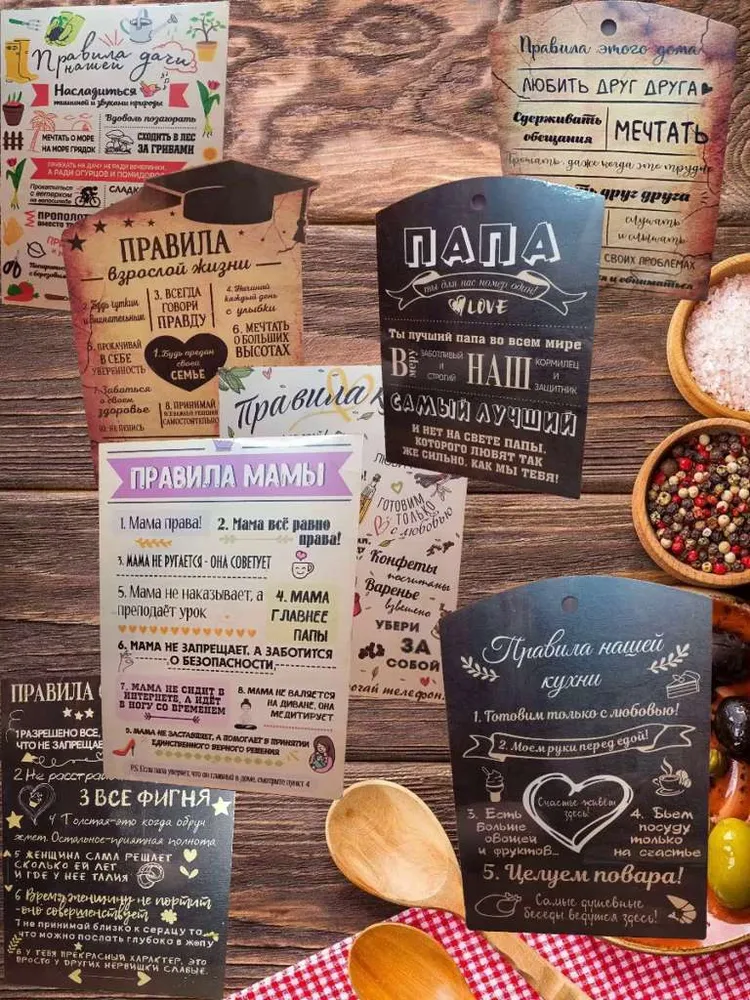 Правила
нашей дачи
Насладиться
тишиной и звуками природы
Вдоволь позагорать
МЕЧТАТЬ О МОРЕ
НА МОРЕ ГРЯДОК
СХОДИТЬ В ЛЕС
ЗА ГРИБАМИ
ПРИЕХАТЬ НА ДАЧУ НЕ РАДИ ВЕЧЕРИНКИ,
А РАДИ ОГУРЦОВ И ПОМИДОРОВ
Прокатиться
с ветерком
на велосипеде
СЛАДКО
ПРОПОЛОТ
вместо
Правила этого дома
ЛЮБИТЬ ДРУГ ДРУГА
Сдерживать
обещания
МЕЧТАТЬ
Прощать, даже когда это трудно
ть друг друга
слушать
и слышать
СВОИХ ПРОБЛЕМАХ
и обниматься
ПРАВИЛА
взрослой жизни
2. Будь чутким
и внимательным
3. ВСЕГДА
ГОВОРИ
ПРАВДУ
4. Начинай
каждый день
с улыбки
5. ПРОКАЧИВАЙ
В СЕБЕ
УВЕРЕННОСТЬ
1. Будь предан
своей
СЕМЬЕ
6. МЕЧТАТЬ
О БОЛЬШИХ
ВЫСОТАХ
7. Заботься
о своем
здоровье
8. ПРИНИМАЙ
САМОСТОЯТЕЛЬНО
ПАПА
ты для нас номер один!
LOVE
Ты лучший папа во всем мире
В меру
ЗАБОТЛИВЫЙ
И
СТРОГИЙ
НАШ
КОРМИЛЕЦ
И
ЗАЩИТНИК
САМЫЙ ЛУЧШИЙ
И НЕТ НА СВЕТЕ ПАПЫ,
КОТОРОГО ЛЮБЯТ ТАК
ЖЕ СИЛЬНО, КАК МЫ ТЕБЯ!
Правила к
ГОТОВИМ
ТОЛЬКО
с любовью
Конфеты
посчитаны
Варенье
взвешено
УБЕРИ
ЗА
СОБОЙ
телефон.
ПРАВИЛА МАМЫ
1. Мама права!
2. Мама всё равно
права!
3. МАМА НЕ РУГАЕТСЯ - ОНА СОВЕТУЕТ
5. Мама не наказывает, а
преподаёт урок
4. МАМА
ГЛАВНЕЕ
ПАПЫ
6. МАМА НЕ ЗАПРЕЩАЕТ, А ЗАБОТИТСЯ
О БЕЗОПАСНОСТИ
7. МАМА НЕ СИДИТ В
ИНТЕРНЕТЕ, А ИДЁТ
В НОГУ СО ВРЕМЕНЕМ
8. МАМА НЕ ВАЛЯЕТСЯ
НА ДИВАНЕ, ОНА
МЕДИТИРУЕТ
9. МАМА НЕ ЗАСТАВЛЯЕТ, А ПОМОГАЕТ В ПРИНЯТИИ
ЕДИНСТВЕННОГО ВЕРНОГО РЕШЕНИЯ
P.S. Если папа уверяет, что он главный в доме, смотрите пункт 4
ПРАВИЛА
1 РАЗРЕШЕНО ВСЕ,
ЧТО НЕ ЗАПРЕЩЕ
2 Не расстра
3 ВСЕ ФИГНЯ
4 Толстая-это когда обруч
жмет. Остальное-приятная полнота
5 ЖЕНЩИНА САМА РЕШАЕТ
СКОЛЬКО ЕЙ ЛЕТ
И ГДЕ У НЕЕ ТАЛИЯ
6 Время женщину не портит
-оно совершенствует
7 не принимай близко к сердцу то,
что можно послать глубоко в жопу
8 У ТЕБЯ ПРЕКРАСНЫЙ ХАРАКТЕР, ЭТО
ПРОСТО У ДРУГИХ НЕРВИШКИ СЛАБЫЕ.
Правила нашей
кухни
1. Готовим только с любовью!
2. Моем руки перед едой!
Счастье живёт
здесь!
3. Есть
больше
овощей
и фруктов...
4. Бьем
посуду
только
на счастье
5. Целуем повара!
Самые душевные
беседы ведутся здесь!